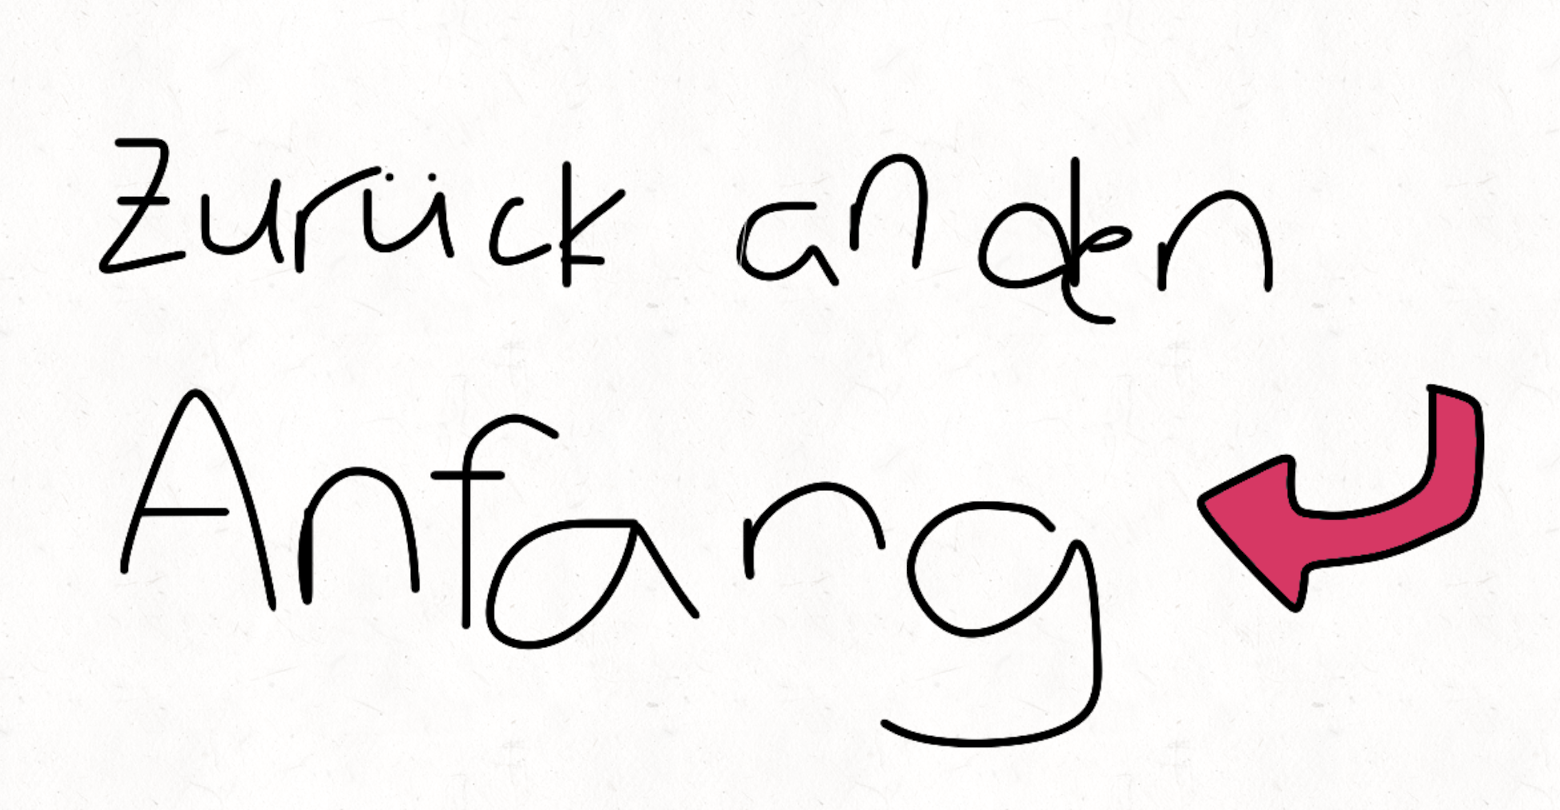 Zurück an den
Anfang